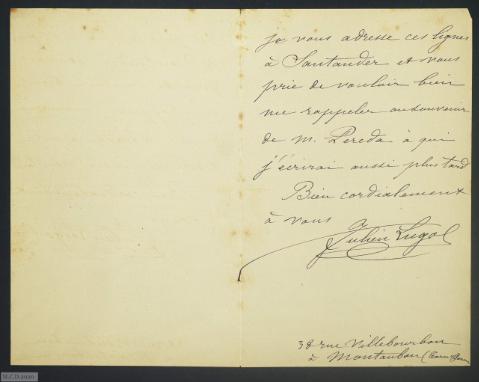 je vous adresse ces lignes
à Santander et vous
prie de vouloir bien
me rappeler au souvenir
de M. Pereda à qui
j'écrirai aussi plus tard
Bien cordialement
à vous
Julien Lugol
38 rue Villebourbon
à Montauban (Tarn &